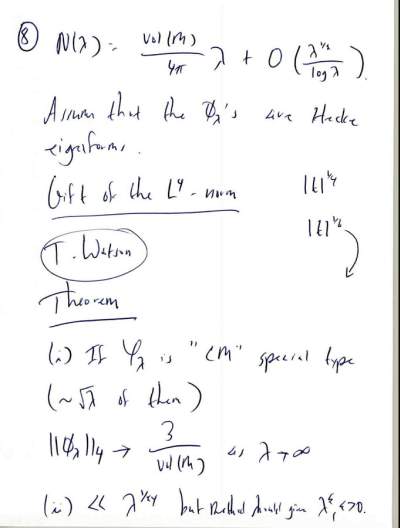 ⑧ N(λ) = vol(M)/4π λ + O(λ^{1/2}/log λ).
Assume that the φ_λ's are Hecke
eigenforms.
Gift of the L⁴-norm |t|^{1/4}
|t|^{1/6}
T. Watson
Theorem
(i) If φ_λ is "CM" special type
(~√λ of them)
||φ_λ||₄ → 3/vol(M) as λ → ∞
(ii) << λ^{1/24} but method should give λ^ε, ε>0.